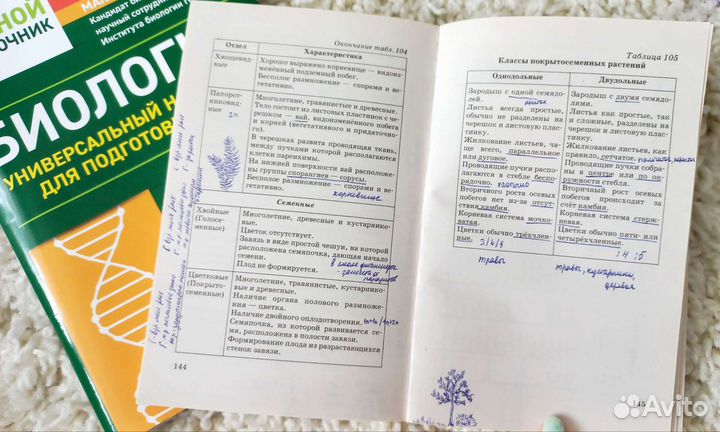 НОЙ
ОЧНИК
Кандидат би
научный сотрудни
Института биологии г
БИОЛОГИ
УНИВЕРСАЛЬНЫЙ Н
ДЛЯ ПОДГОТОВ
Окончание табл. 104
Отдел
Характеристика
Хвощевид-
ные
Хорошо выражено корневище — видоиз-
менённый подземный побег.
Бесполое размножение — спорами и ве-
гетативно.
Папорот-
никовид-
ные
Многолетние, травянистые и древесные.
Тело состоит из листовых пластинок с че-
решком — вай, видоизменённого побега
и корней (вегетативного и придаточно-
го).
В черешках развита проводящая ткань,
между пучками которой располагаются
клетки паренхимы.
На нижней поверхности вай расположе-
ны группы спорангиев — сорусы.
Бесполое размножение — спорами и ве-
гетативно.
корневище
Семенные
Хвойные
(Голосе-
менные)
Многолетние, древесные и кустарнико-
вые.
Цветок отсутствует.
Завязь в виде простой чешуи, на которой
расположена семяпочка, дающая начало
семени.
Плод не формируется.
Цветковые
(Покрыто-
семенные)
Многолетние, травянистые, кустарнико-
вые и древесные.
Наличие органа полового размноже-
ния — цветка.
Наличие двойного оплодотворения.
Семяпочка, из которой развивается се-
мя, расположена в полости завязи.
Формирование плода из разрастающихся
стенок завязи.
144
Таблица 105
Классы покрытосеменных растений
Однодольные
Двудольные
Зародыш с одной семядо-
лей.
Листья всегда простые,
обычно не разделены на
черешок и листовую плас-
тинку.
Жилкование листьев, ча-
ще всего, параллельное
или дуговое.
Проводящие пучки распо-
лагаются в стебле беспо-
рядочно.
Вторичного роста осевых
побегов нет из-за отсут-
ствия камбия.
Корневая система мочко-
ватая.
Цветки обычно трёхчлен-
ные.
3/6/9
Зародыш с двумя семядо-
лями.
Листья как простые, так
и сложные, разделены на
черешок и листовую плас-
тинку.
Жилкование листьев, как
правило, сетчатое.
Проводящие пучки собра-
ны в центре или по ок-
ружности стебля.
Вторичный рост осевых
побегов происходит за
счёт камбия.
Корневая система стерж-
невая.
Цветки обычно пяти- или
четырёхчленные.
:4 :5
травы
травы, кустарники,
деревья
145
Avito